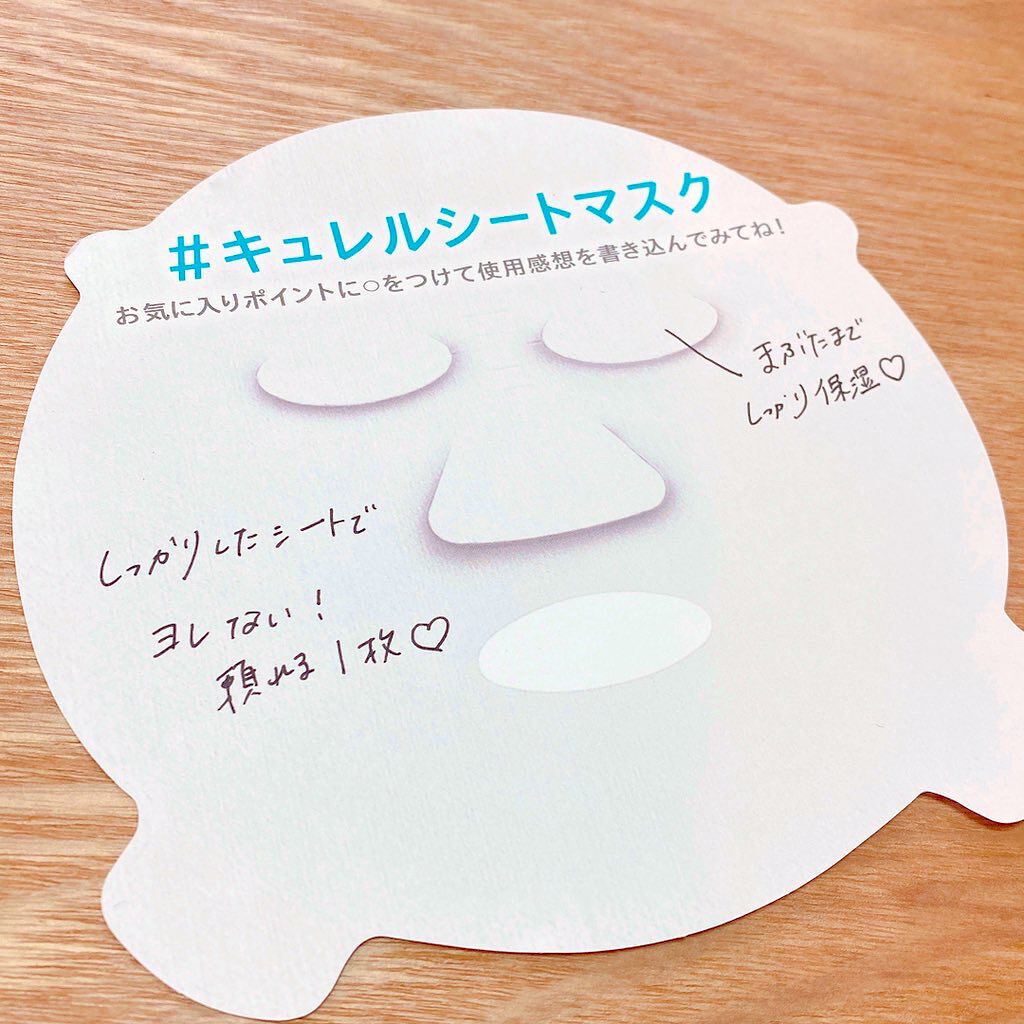 #キュレルシートマスク
お気に入りポイントに○をつけて使用感想を書き込んでみてね!
まぶたまで
しっかり保湿♡
しっかりしたシートで
ヨレない!
頼れる1枚♡